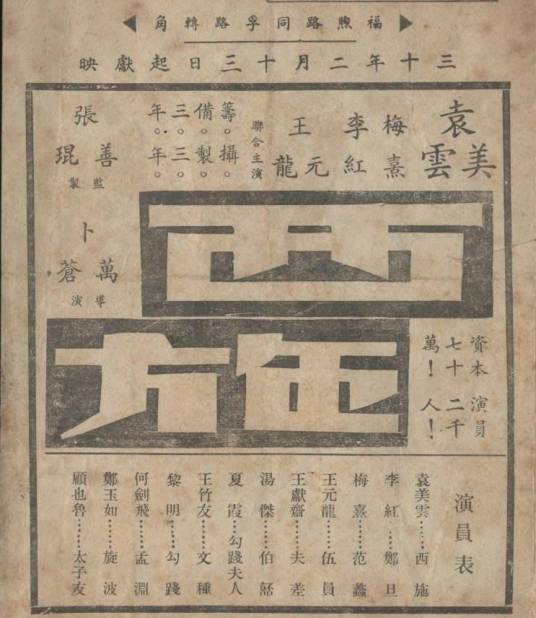 福煦路同孚路轉角
三十年二月十三日起獻映
袁美雲
梅熹
李紅
王元龍
聯合主演
籌備三年。
攝製三年。
張善琨
監製
卜萬蒼
導演
西
施
資本七十萬！
演員二千人！
演員表
袁美雲……西施
李紅……鄭旦
梅熹……范蠡
王元龍……伍員
王獻齋……夫差
湯傑……伯嚭
夏霞……勾踐夫人
王竹友……文種
黎明……勾踐
何劍飛……孟淵
鄭玉如……旋波
顧也魯……太子友